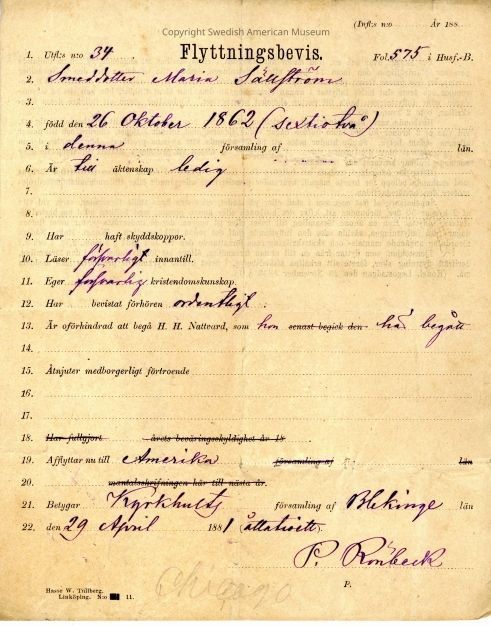 Copyright Swedish American Museum
(Infl:s n:o År 188
1. Utfl:s n:o 34. Flyttningsbevis. Fol. 575 i Husf.-B.
2. Smeddotter Maria Sällström
3.
4. född den 26 Oktober 1862 (sextiotvå)
5. i denna församling af län.
6. Är till äktenskap ledig
7.
8.
9. Har haft skyddskoppor.
10. Läser försvarligt innantill.
11. Eger försvarlig kristendomskunskap.
12. Har bevistat förhören ordentligt.
13. Är oförhindrad att begå H. H. Nattvard, som hon senast begick den här begått
14.
15. Åtnjuter medborgerligt förtroende
16.
17.
18. Har fullgjort årets beväringsskyldighet år 18
19. Afflyttar nu till Amerika församling af län
20. mantalsskrifningen här till nästa år.
21. Betygar Kyrkhults församling af Blekinge län
22. den 29 April 1881 (åttatioett).
P. Rönbeck
P.
Hasse W. Tullberg.
Linköping. N:o 11.
Chicago